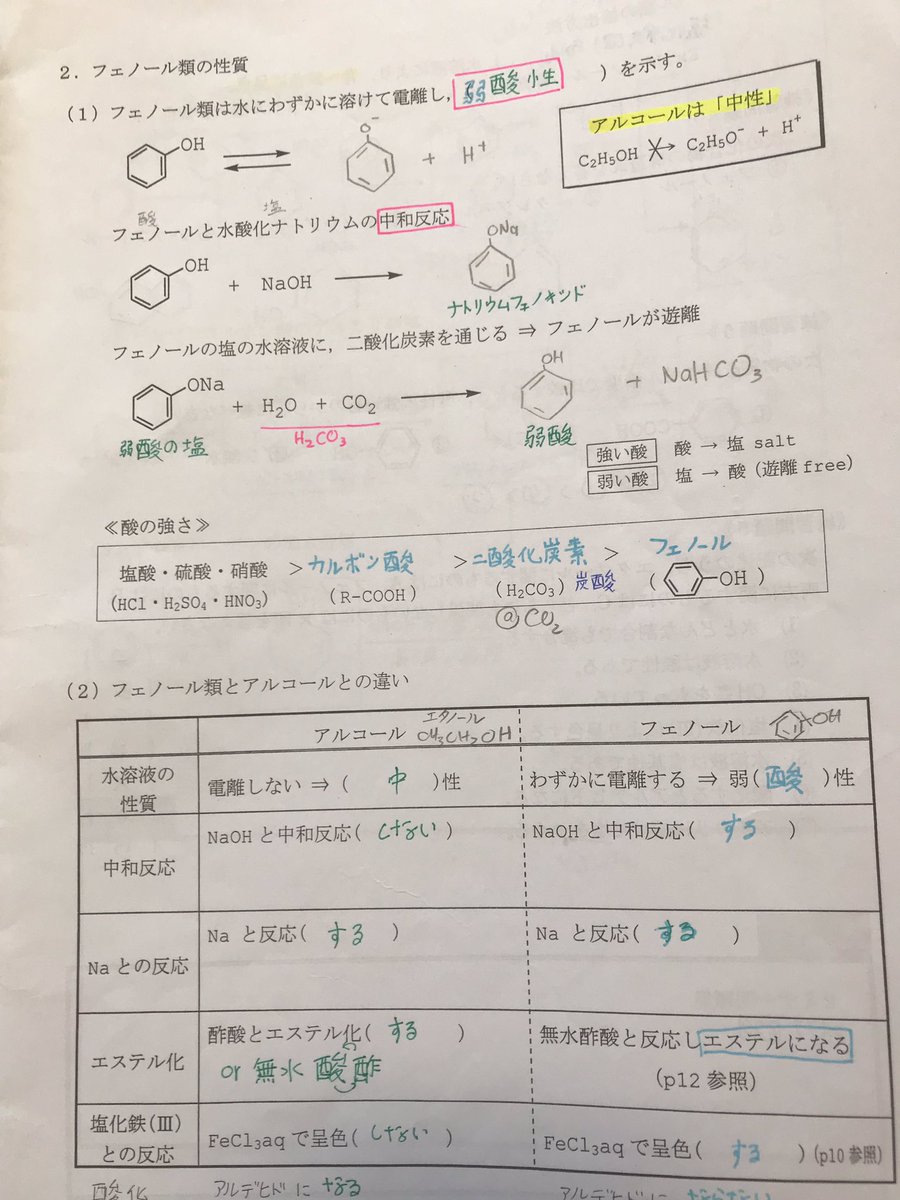 2．フェノール類の性質
(1) フェノール類は水にわずかに溶けて電離し，弱酸性 ）を示す。
アルコールは「中性」
C₂H₅OH → C₂H₅O⁻ + H⁺
OH O⁻ + H⁺
酸 塩
フェノールと水酸化ナトリウムの中和反応
OH + NaOH → ONa
ナトリウムフェノキシド
フェノールの塩の水溶液に，二酸化炭素を通じる ⇒ フェノールが遊離
ONa + H₂O + CO₂ → OH + NaHCO₃
H₂CO₃
弱酸の塩 弱酸
強い酸 酸 → 塩 salt
弱い酸 塩 → 酸（遊離 free）
≪酸の強さ≫
塩酸・硫酸・硝酸 > カルボン酸 > 二酸化炭素 > フェノール
(HCl・H₂SO₄・HNO₃) (R-COOH) (H₂CO₃) 炭酸 ( OH )
@CO₂
(2) フェノール類とアルコールとの違い
アルコール エタノール CH₃CH₂OH フェノール OH
水溶液の性質 電離しない ⇒ ( 中 )性 わずかに電離する ⇒ 弱(酸 )性
中和反応 NaOH と中和反応( しない ) NaOH と中和反応( する )
Na との反応 Na と反応( する ) Na と反応( する )
エステル化 酢酸とエステル化( する ) 無水酢酸と反応しエステルになる
or 無水 酸酢 (p12 参照)
塩化鉄(Ⅲ)との反応 FeCl₃aq で呈色( しない ) FeCl₃aq で呈色( する ) (p10 参照)
酸化 アルデヒドになる